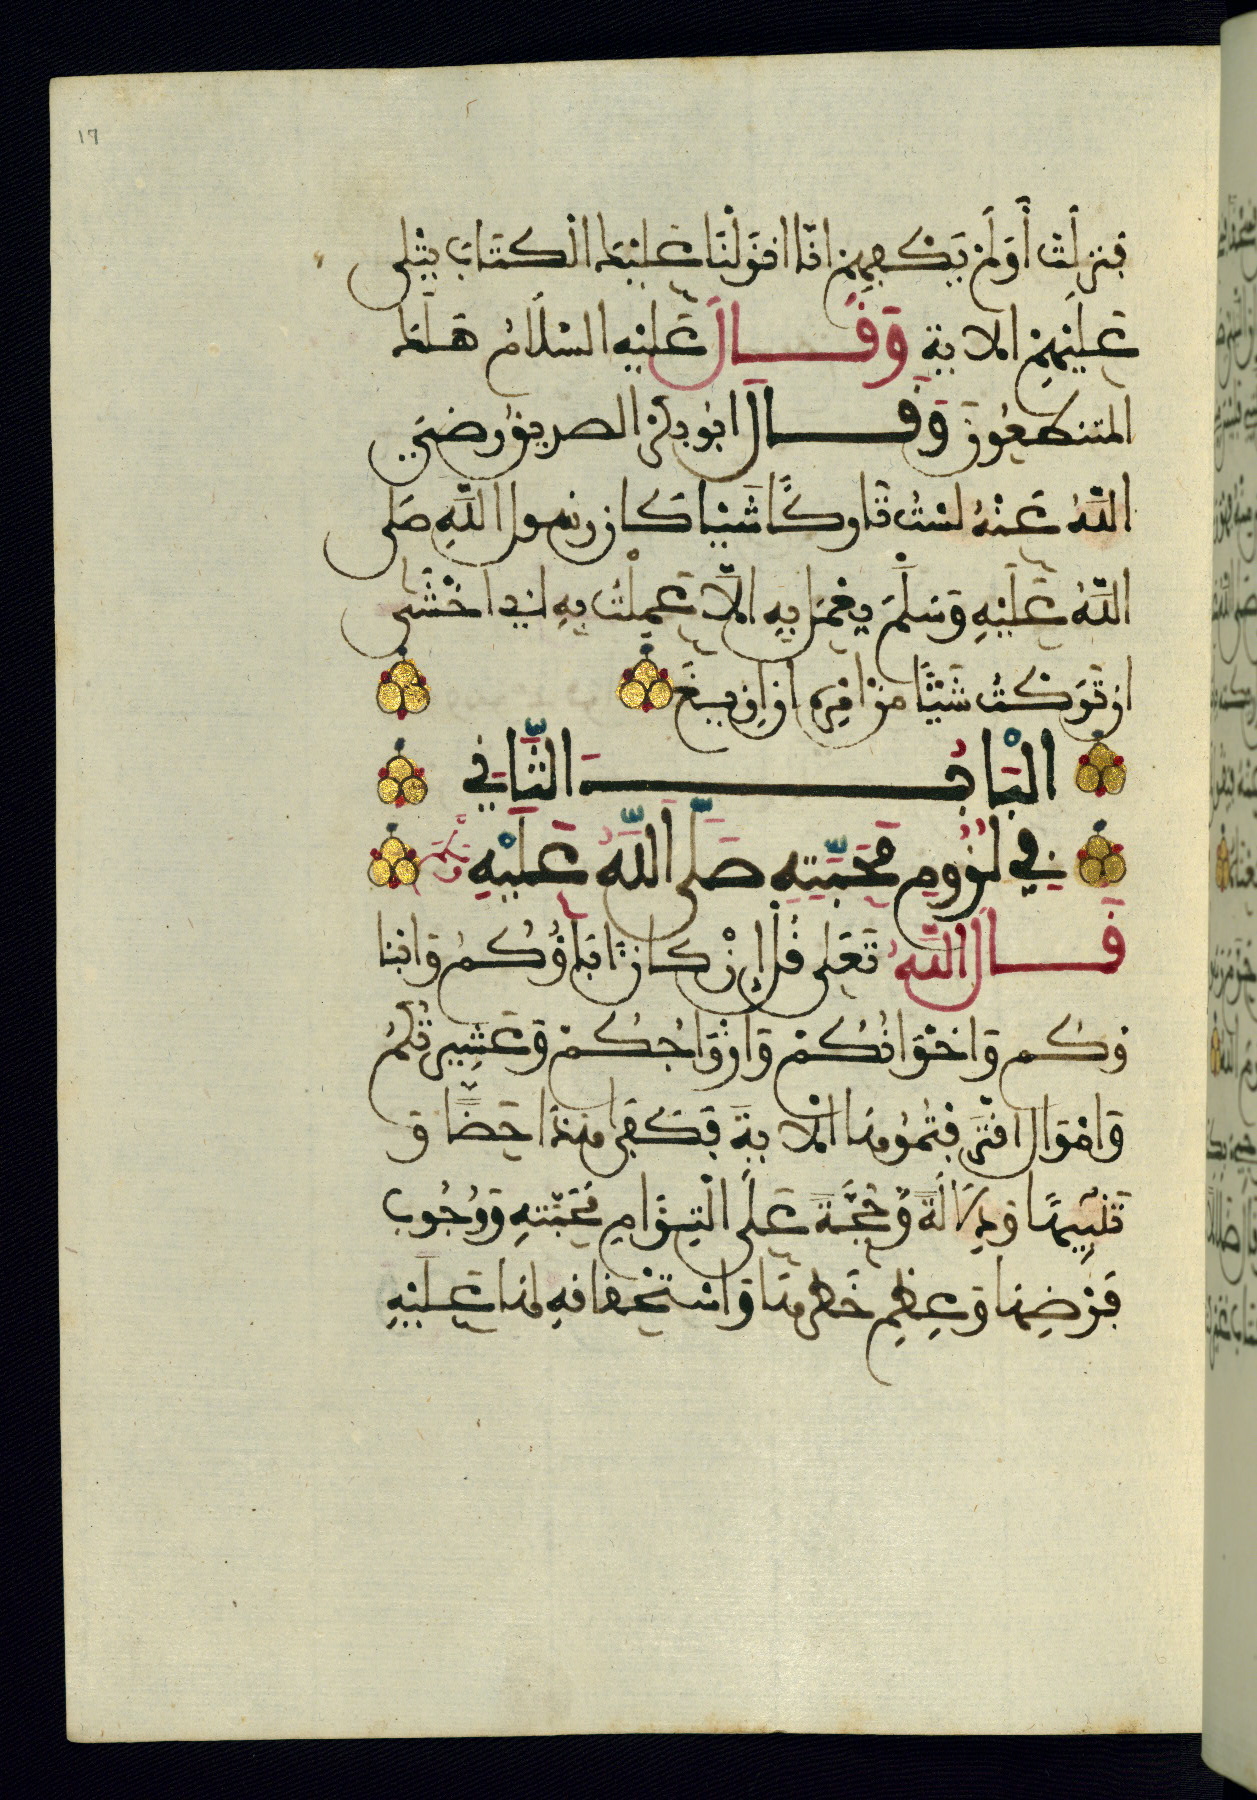 ١٦
فنزلت أولم يكفهم انا انزلنا عليك الكتاب يتلى
عليهم الاية وقال عليه السلام هلك
المتنطعون وقال ابو بكر الصديق رضي
الله عنه لست تاركا شيا كان رسول الله صلى
الله عليه وسلم يعمل به الا عملت به اني اخشى
ان تركت شيئا من امره ان ازيغ
الباب الثاني
في لزوم محبته صلى الله عليه وسلم
قال الله تعلى قل إن كان ءاباؤكم وابنا
ؤكم واخوانكم وازواجكم وعشيرتكم
واموال اقترفتموها الاية فكفى بهذا حضا و
تنبيها ودلالة وحجة على التزام محبته ووجوب
فرضها وعظم خطرها واستحقاقه لها عليه